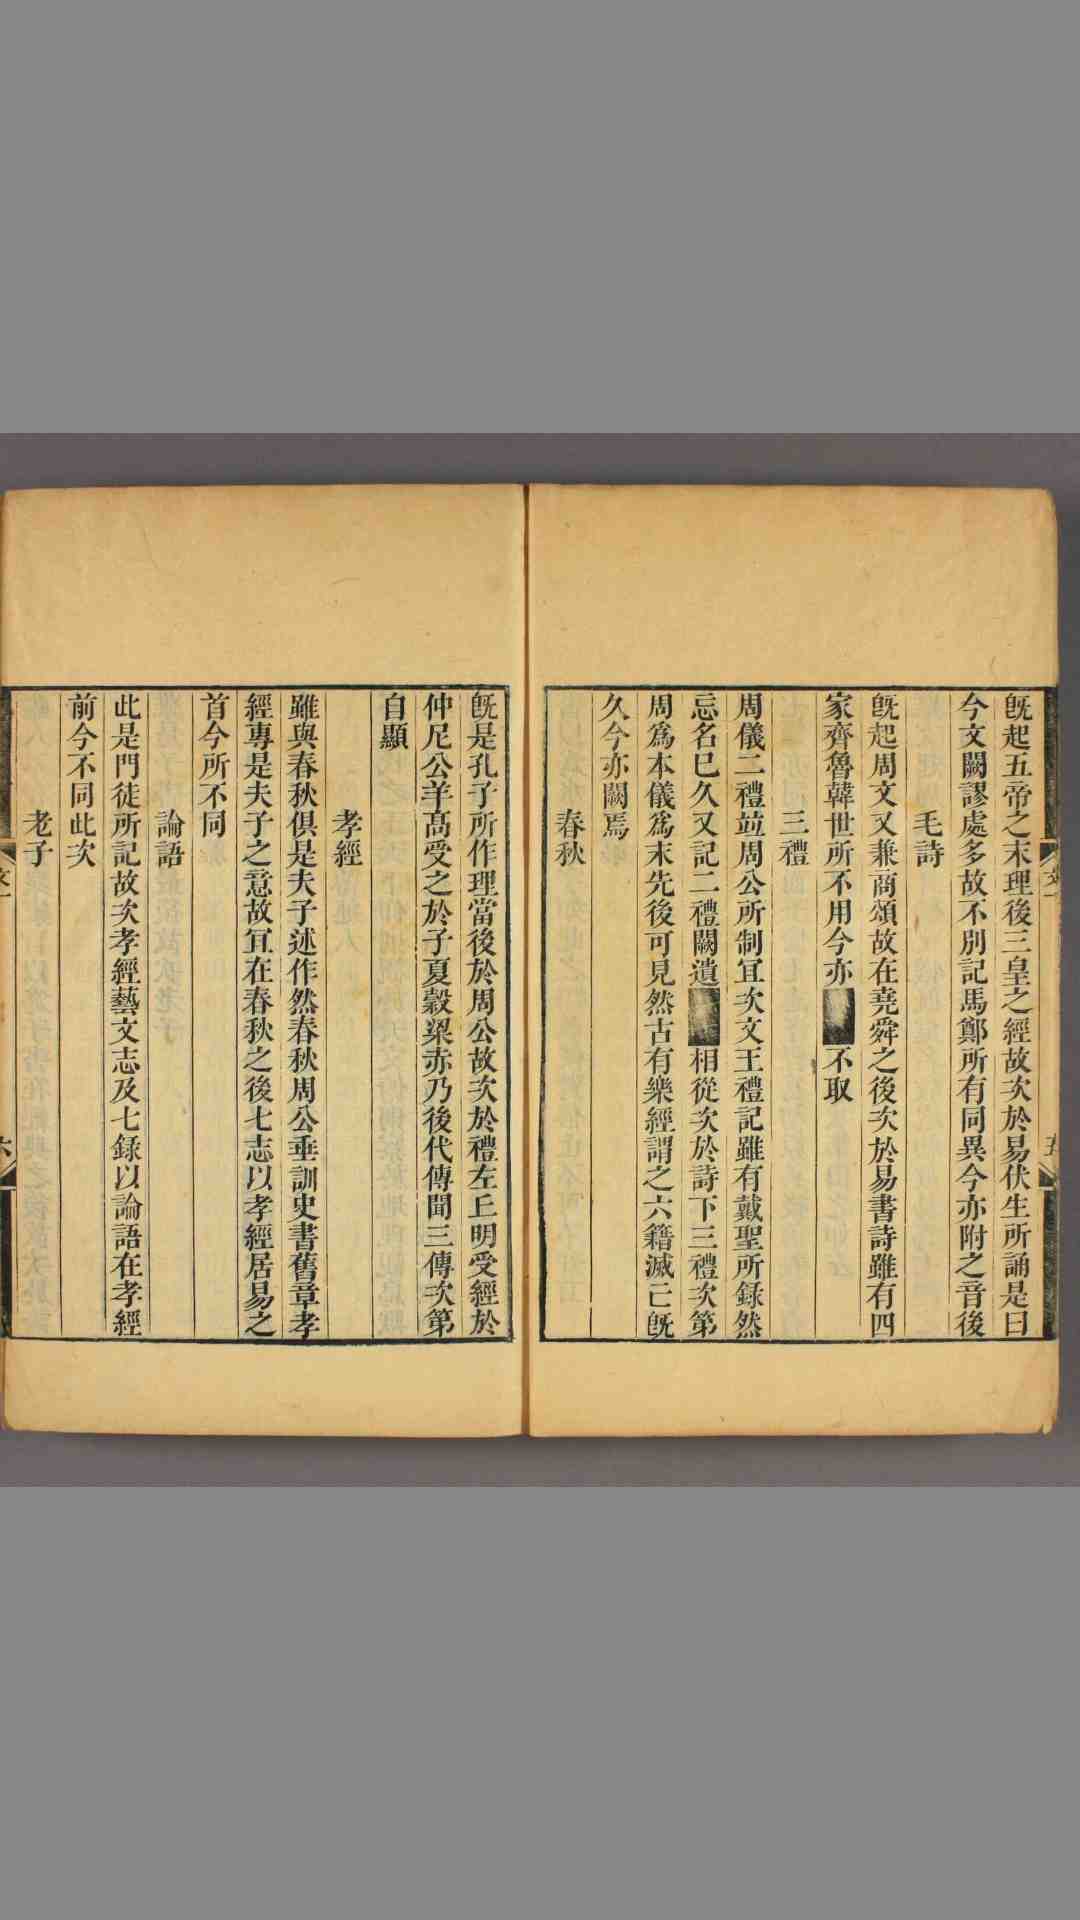 既起五帝之末理後三皇之經故次於易伏生所誦是曰
今文闕謬處多故不別記馬鄭所有同異今亦附之音後
毛詩
既起周文又兼商頌故在堯舜之後次於易書詩雖有四
家齊魯韓世所不用今亦不取
三禮
周儀二禮並周公所制宜次文王禮記雖有戴聖所錄然
忘名已久又記二禮闕遺相從次於詩下三禮次第
周爲本儀爲末先後可見然古有樂經謂之六籍滅亡既
久今亦闕焉
春秋
既是孔子所作理當後於周公故次於禮左丘明受經於
仲尼公羊高受之於子夏穀梁赤乃後代傳聞三傳次第
自顯
孝經
雖與春秋俱是夫子述作然春秋周公垂訓史書舊章孝
經專是夫子之意故宜在春秋之後七志以孝經居易之
首今所不同
論語
此是門徒所記故次孝經藝文志及七錄以論語在孝經
前今不同此次
老子